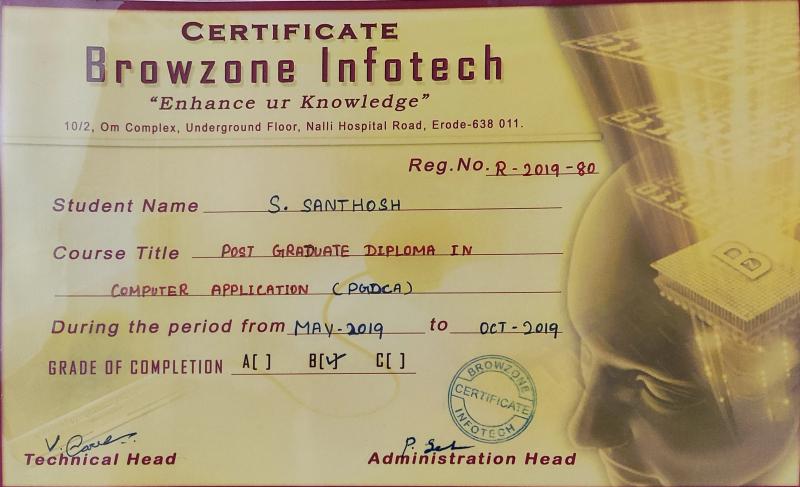 CERTIFICATE
Browzone Infotech
"Enhance ur Knowledge"
10/2, Om Complex, Underground Floor, Nalli Hospital Road, Erode-638 011.
Reg.No. R - 2019 - 80
Student Name S. SANTHOSH
Course Title POST GRADUATE DIPLOMA IN
COMPUTER APPLICATION (PGDCA)
During the period from MAY-2019 to OCT-2019
GRADE OF COMPLETION A[ ] B[✓] C[ ]
BROWZONE
CERTIFICATE
INFOTECH
Technical Head Administration Head
B